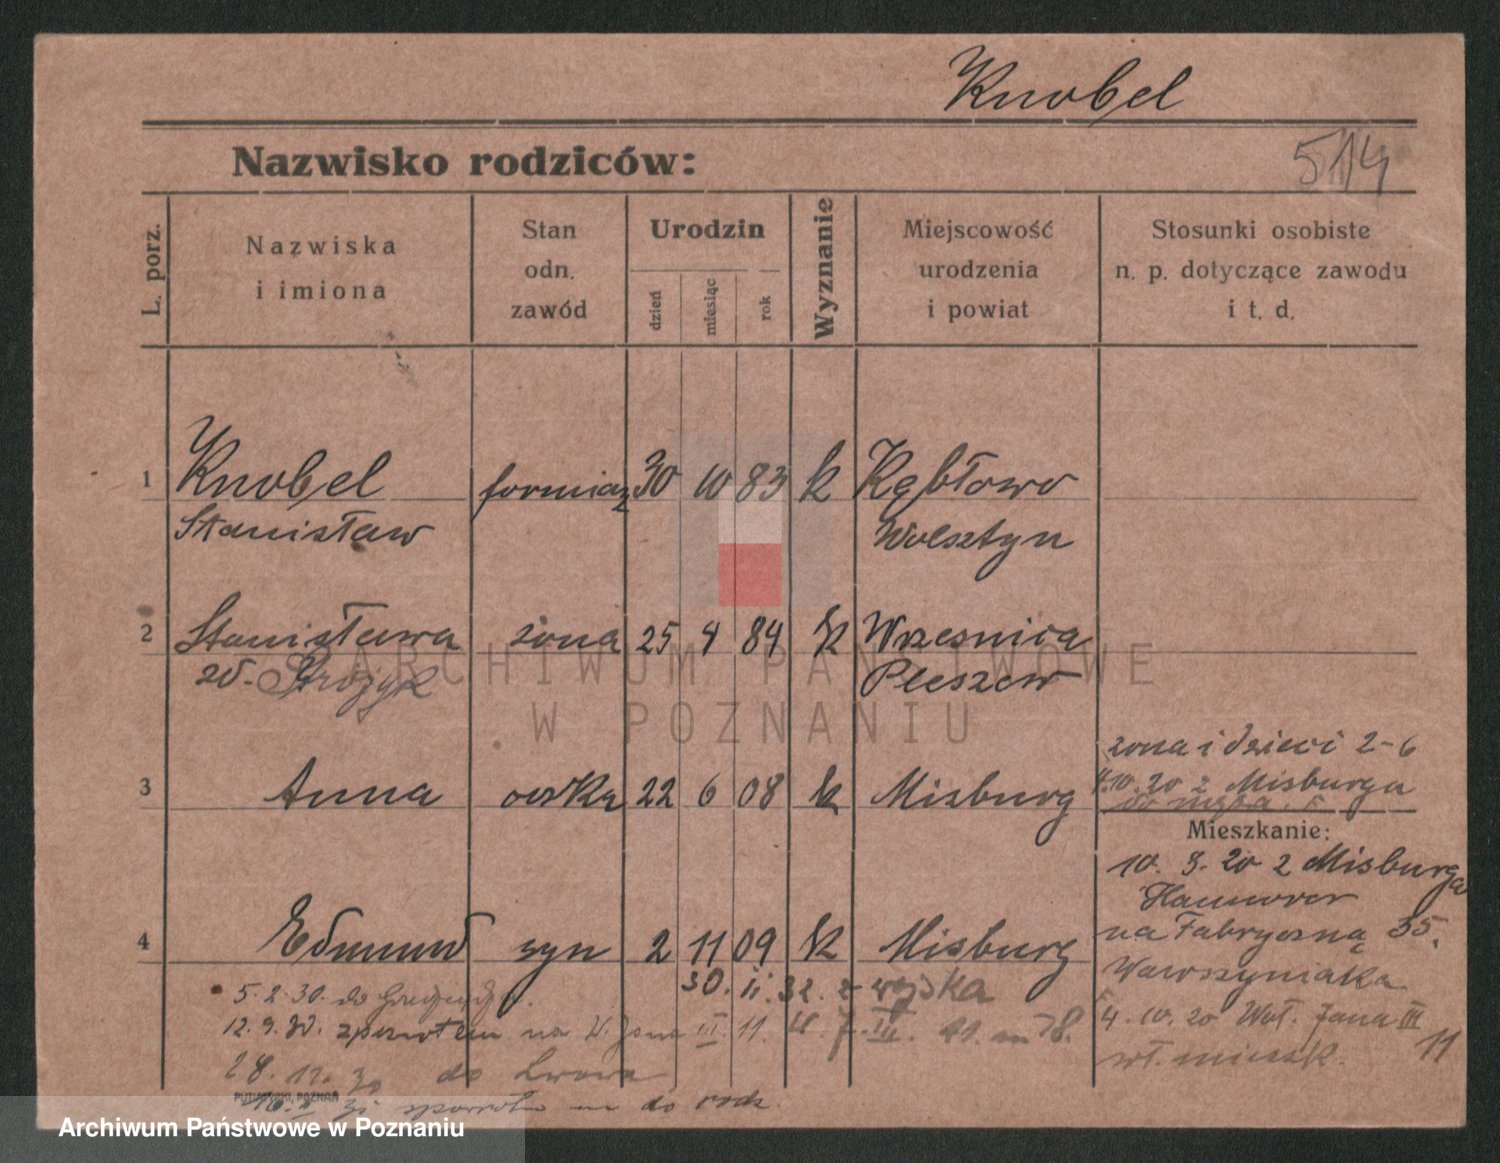 Knobel
514
Nazwisko rodziców:
L. porz.
Nazwiska i imiona
Stan odn. zawód
Urodzin
dzień
miesiąc
rok
Wyznanie
Miejscowość urodzenia i powiat
Stosunki osobiste n. p. dotyczące zawodu i t. d.
1 Knobel forniarz 30 10 83 k Kębłowo
Stanisław Wolsztyn
2 Stanisława żona 25 4 84 k Wrzesnica
zd. Stróżyk Pleszew
ARCHIWUM PAŃSTWOWE
W POZNANIU
żona i dzieci 2-6
4.10.20 z Misburga
do męża
3 Anna córka 22 6 08 k Misburg
Mieszkanie:
10. 9. 20 z Misburga
Hannover
na Fabryczną 35.
4 Edmund syn 2 11 09 k Misburg
Wawrzyniaka
5. 2. 30. do
30. 11. 32. z wojska
12. 9. 30. z powrotem na W. Jana III. 11.
4. 10. 20 Wał. Jana III 11
wł. mieszk.
28. 12. 30 do Lwowa
PUTIATYCKI, POZNAŃ
31 zpowrotem do rodz
Archiwum Państwowe w Poznaniu